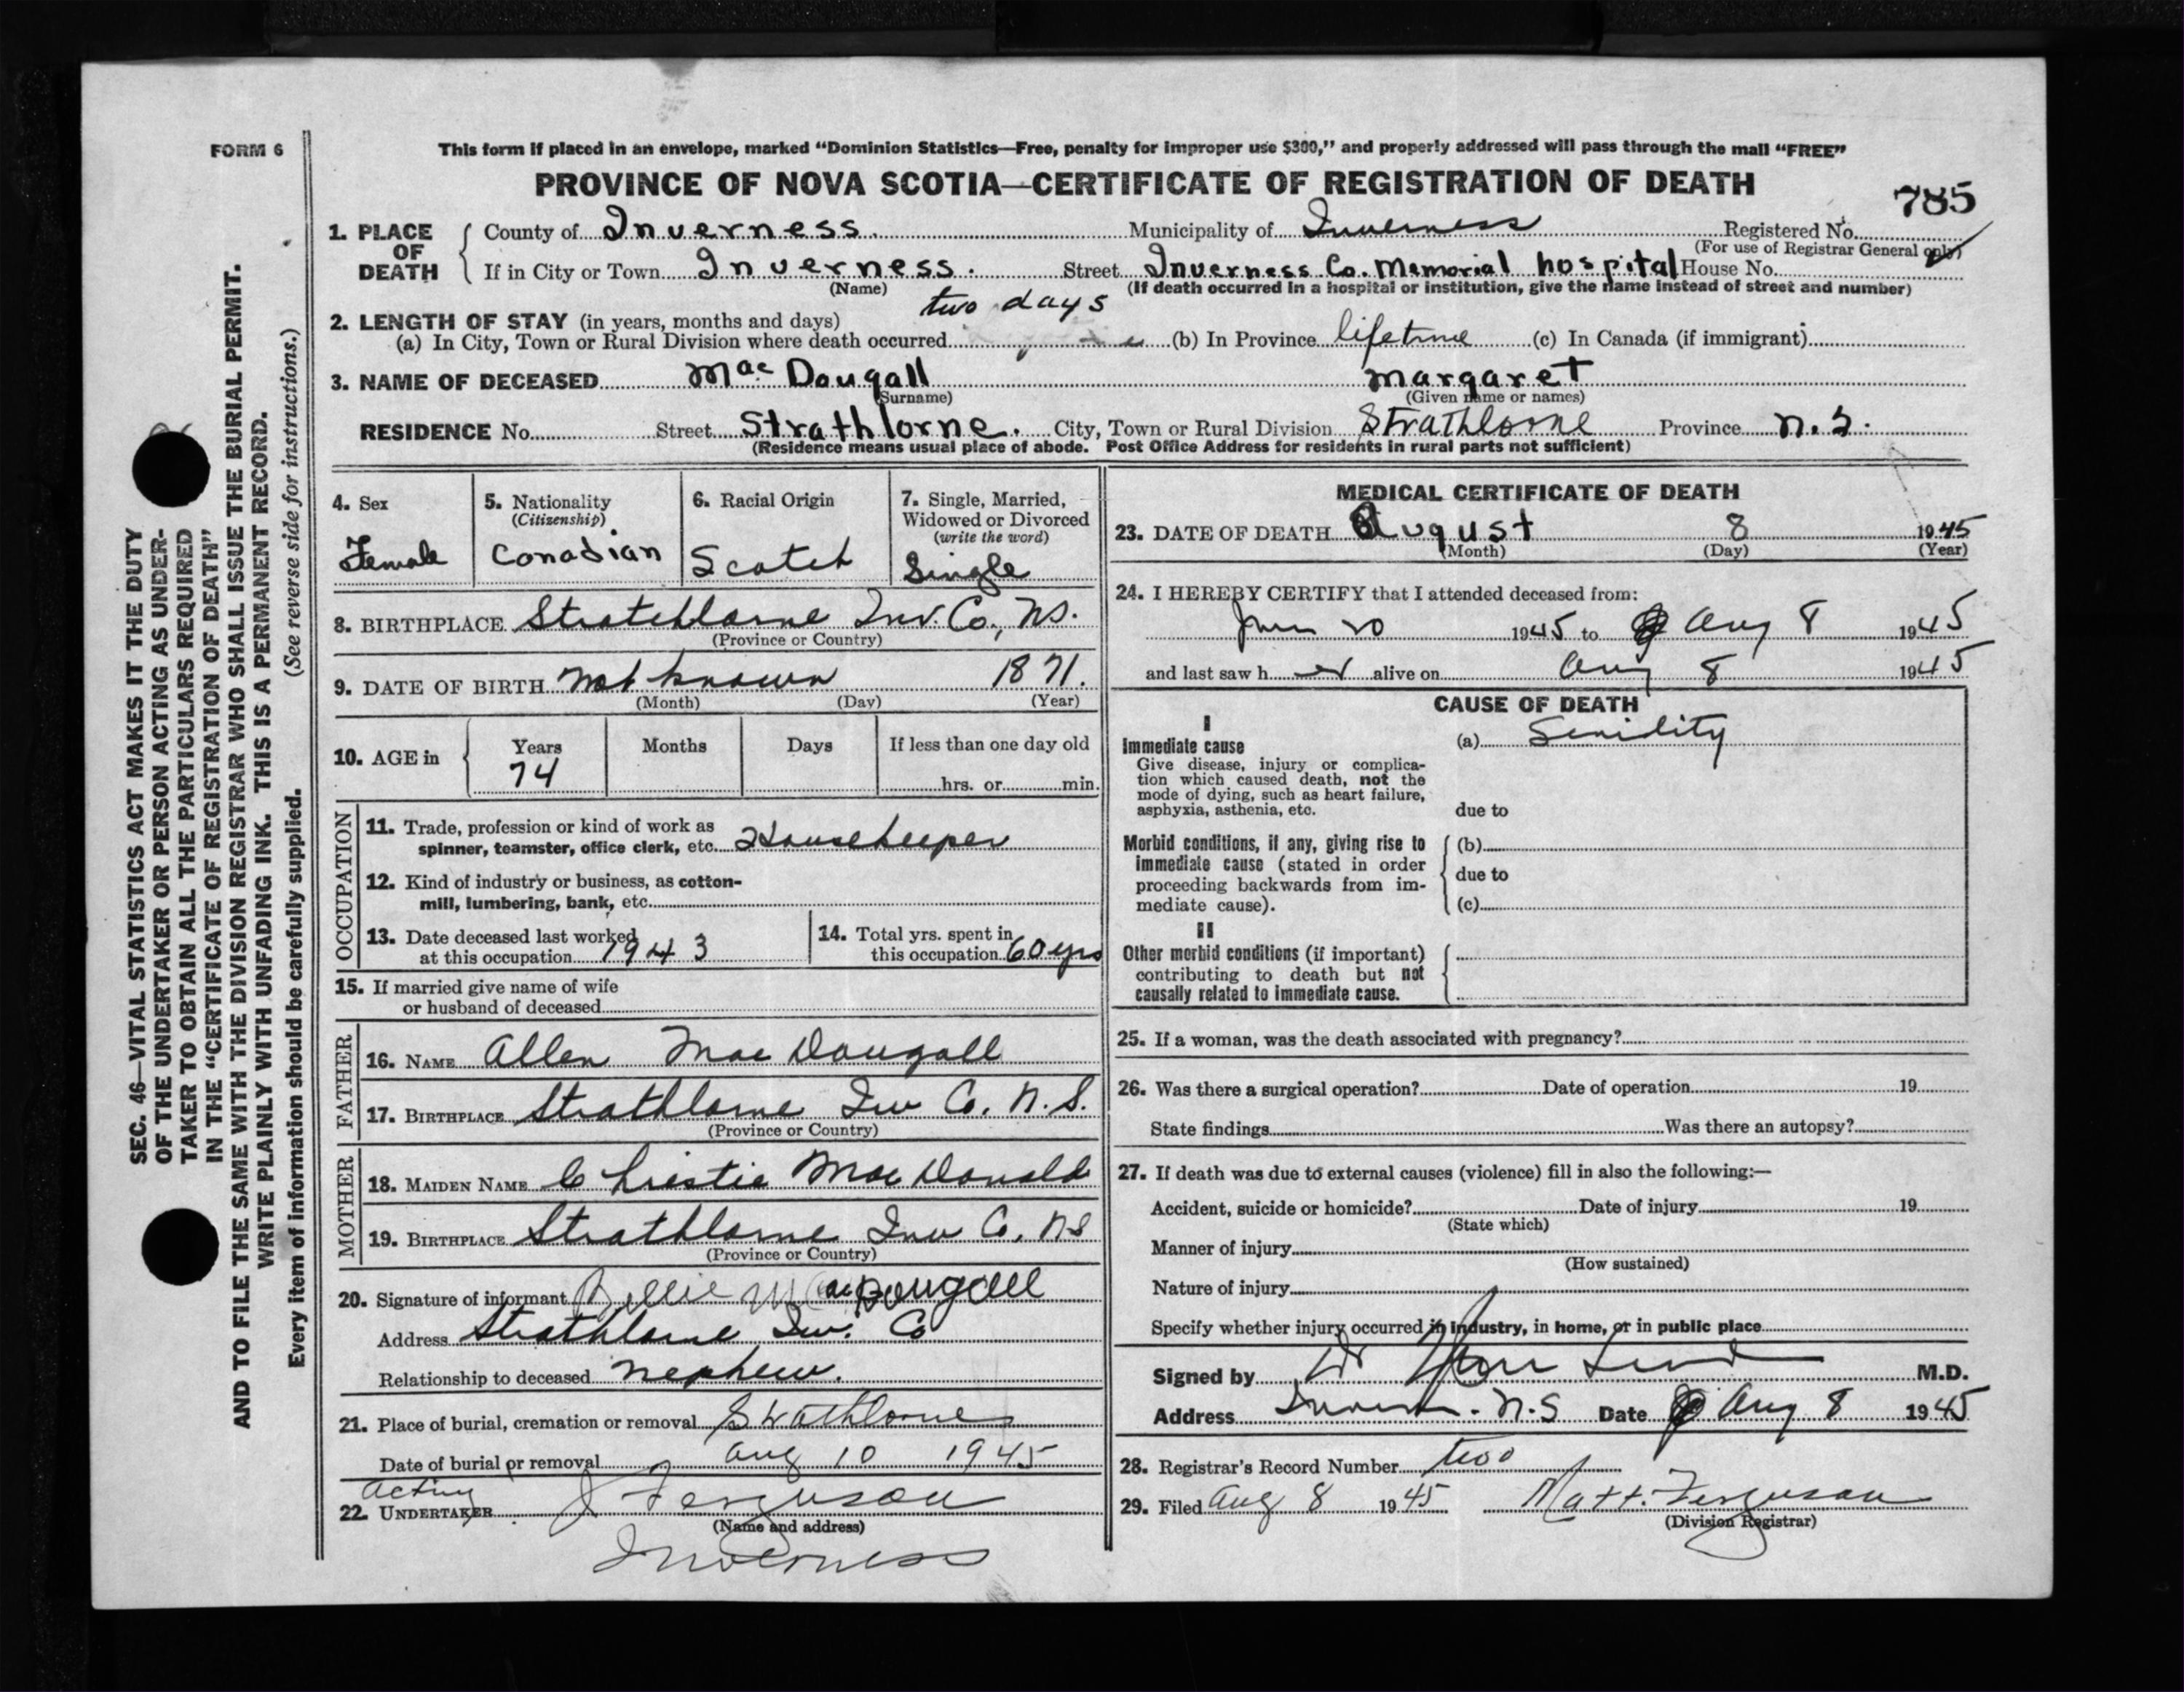 FORM 6
This form if placed in an envelope, marked “Dominion Statistics—Free, penalty for improper use $300,” and properly addressed will pass through the mail “FREE”
PROVINCE OF NOVA SCOTIA—CERTIFICATE OF REGISTRATION OF DEATH
785
1. PLACE OF DEATH
County of Inverness. Municipality of Inverness Registered No.
(For use of Registrar General only)
If in City or Town Inverness. Street Inverness Co. Memorial hospital House No.
(Name) (If death occurred in a hospital or institution, give the name instead of street and number)
two days
2. LENGTH OF STAY (in years, months and days)
(a) In City, Town or Rural Division where death occurred (b) In Province lifetime (c) In Canada (if immigrant)
3. NAME OF DECEASED MacDougall Margaret
(Surname) (Given name or names)
RESIDENCE No. Street Strathlorne. City, Town or Rural Division Strathlorne Province N.S.
(Residence means usual place of abode. Post Office Address for residents in rural parts not sufficient)
4. Sex
Female
5. Nationality
(Citizenship)
Canadian
6. Racial Origin
Scotch
7. Single, Married,
Widowed or Divorced
(write the word)
Single
8. BIRTHPLACE Strathlorne Inv. Co., NS.
(Province or Country)
9. DATE OF BIRTH Not known 1871.
(Month) (Day) (Year)
10. AGE in
Years Months Days If less than one day old
74
hrs. or min.
OCCUPATION
11. Trade, profession or kind of work as
spinner, teamster, office clerk, etc. Housekeeper
12. Kind of industry or business, as cotton-
mill, lumbering, bank, etc.
13. Date deceased last worked
at this occupation 1943
14. Total yrs. spent in
this occupation 60 yrs
15. If married give name of wife
or husband of deceased
FATHER
16. NAME Allen MacDougall
17. BIRTHPLACE Strathlorne Inv Co. N.S.
(Province or Country)
MOTHER
18. MAIDEN NAME Christie MacDonald
19. BIRTHPLACE Strathlorne Inv Co. NS
(Province or Country)
20. Signature of informant Billie MacDougall
Address Strathlorne Inv. Co
Relationship to deceased nephew.
21. Place of burial, cremation or removal Strathlorne
Date of burial or removal Aug 10 1945
Acting
22. UNDERTAKER J Ferguson
(Name and address)
Inverness
MEDICAL CERTIFICATE OF DEATH
23. DATE OF DEATH August 8 1945
(Month) (Day) (Year)
24. I HEREBY CERTIFY that I attended deceased from:
20 1945 to Aug 8 1945
and last saw her alive on Aug 8 1945
CAUSE OF DEATH
I
Immediate cause
Give disease, injury or complica-
tion which caused death, not the
mode of dying, such as heart failure,
asphyxia, asthenia, etc.
(a) Senidity
due to
Morbid conditions, if any, giving rise to
immediate cause (stated in order
proceeding backwards from im-
mediate cause).
(b)
due to
(c)
II
Other morbid conditions (if important)
contributing to death but not
causally related to immediate cause.
25. If a woman, was the death associated with pregnancy?
26. Was there a surgical operation? Date of operation 19
State findings Was there an autopsy?
27. If death was due to external causes (violence) fill in also the following:—
Accident, suicide or homicide? Date of injury 19
(State which)
Manner of injury
(How sustained)
Nature of injury
Specify whether injury occurred in industry, in home, or in public place
Signed by M.D.
Address N.S Date Aug 8 1945
28. Registrar's Record Number two
29. Filed Aug 8 1945 Matt. Ferguson
(Division Registrar)
SEC. 46—VITAL STATISTICS ACT MAKES IT THE DUTY
OF THE UNDERTAKER OR PERSON ACTING AS UNDER-
TAKER TO OBTAIN ALL THE PARTICULARS REQUIRED
IN THE “CERTIFICATE OF REGISTRATION OF DEATH”
AND TO FILE THE SAME WITH THE DIVISION REGISTRAR WHO SHALL ISSUE THE BURIAL PERMIT.
WRITE PLAINLY WITH UNFADING INK. THIS IS A PERMANENT RECORD.
Every item of information should be carefully supplied. (See reverse side for instructions.)